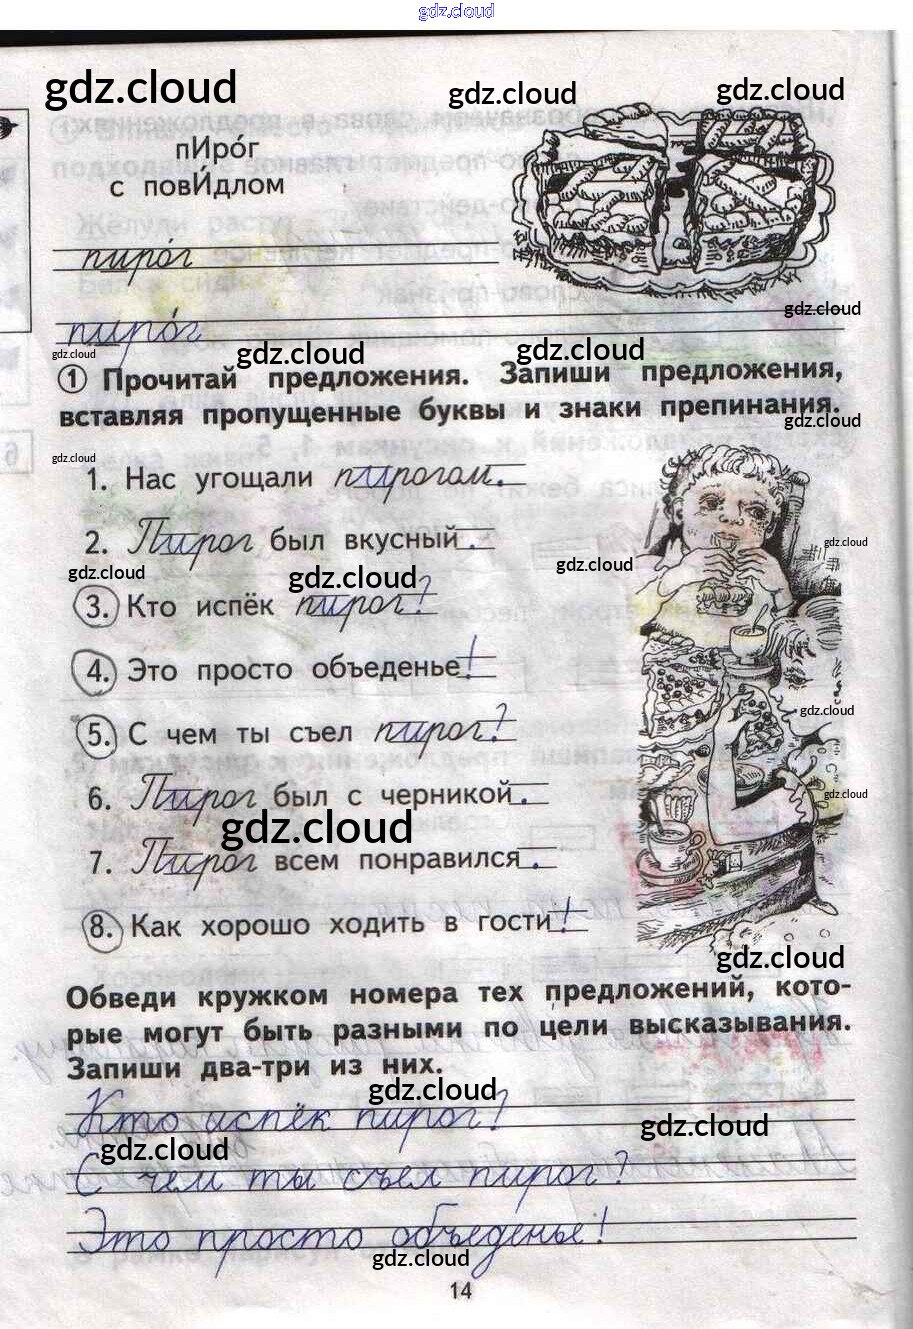 gdz.cloud
gdz.cloud
gdz.cloud
gdz.cloud
пИрóг
с повИ́длом
пирóг
gdz.cloud
пирóг
gdz.cloud
gdz.cloud
gdz.cloud
1 Прочитай предложения. Запиши предложения,
вставляя пропущенные буквы и знаки препинания.
gdz.cloud
gdz.cloud
1. Нас угощали пирогом.
2. Пирог был вкусный.
gdz.cloud
gdz.cloud
gdz.cloud
gdz.cloud
3. Кто испёк пирог?
4. Это просто объеденье!
gdz.cloud
5. С чем ты съел пирог?
6. Пирог был с черникой.
gdz.cloud
gdz.cloud
7. Пирог всем понравился.
8. Как хорошо ходить в гости!
gdz.cloud
Обведи кружком номера тех предложений, кото-
рые могут быть разными по цели высказывания.
Запиши два-три из них.
gdz.cloud
Кто испёк пирог?
gdz.cloud
gdz.cloud
С чем ты съел пирог?
Это просто объеденье!
gdz.cloud
14